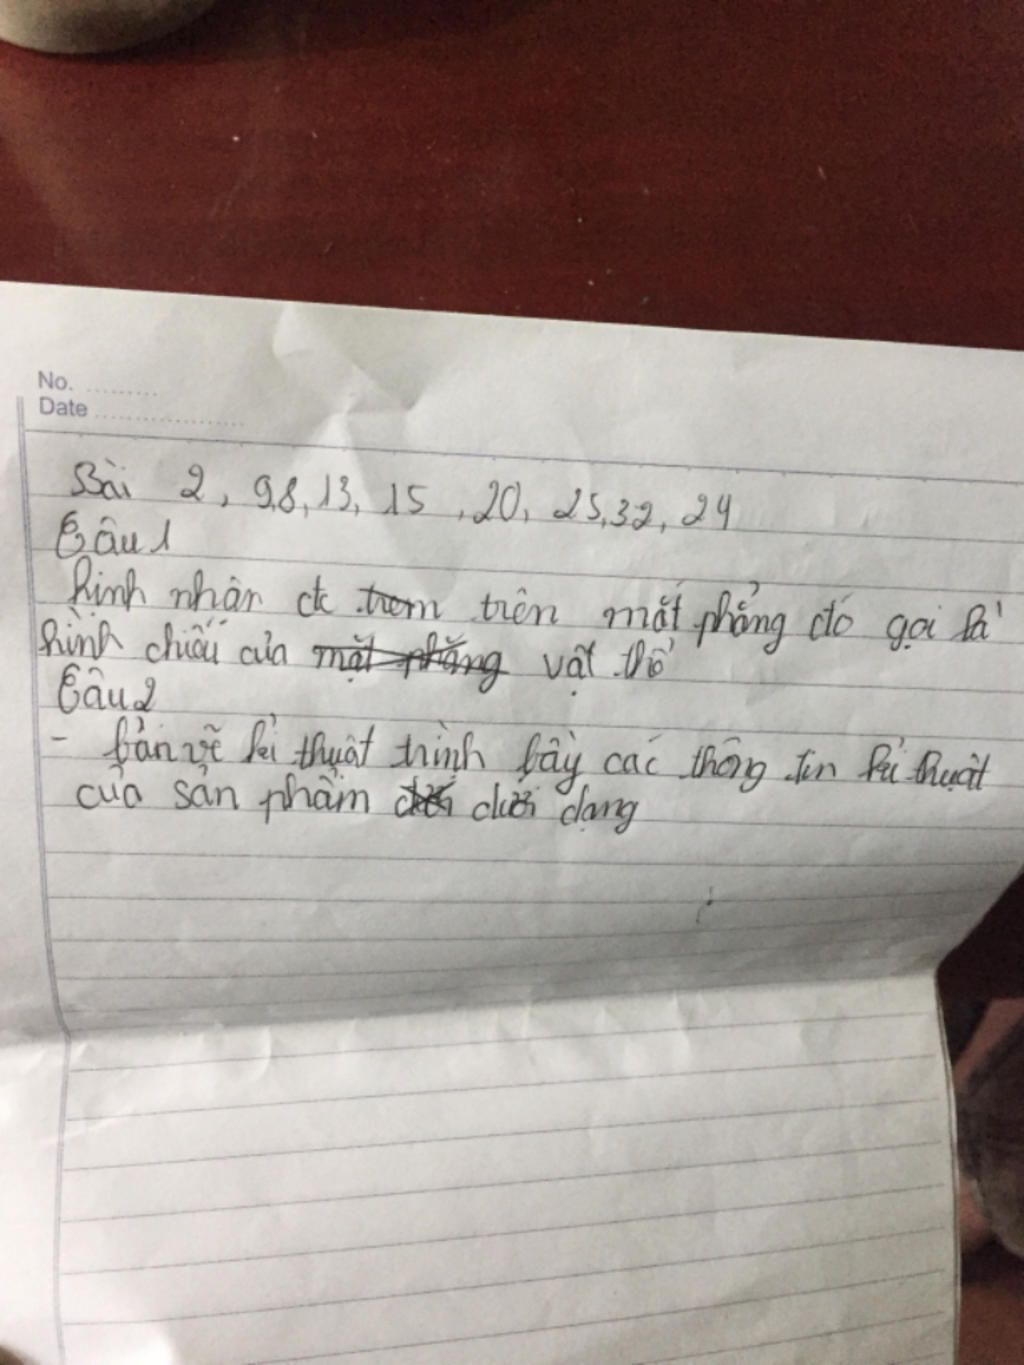 No. ..........
Date ....................
Bài 2, 9,8, 13, 15, 20, 25, 32, 24
Câu 1
hình nhận đc trên mặt phẳng đó gọi là
hình chiếu của mặt phẳng vật thể
Câu 2
- bản vẽ kĩ thuật trình bày các thông tin kĩ thuật
của sản phẩm dưới dạng